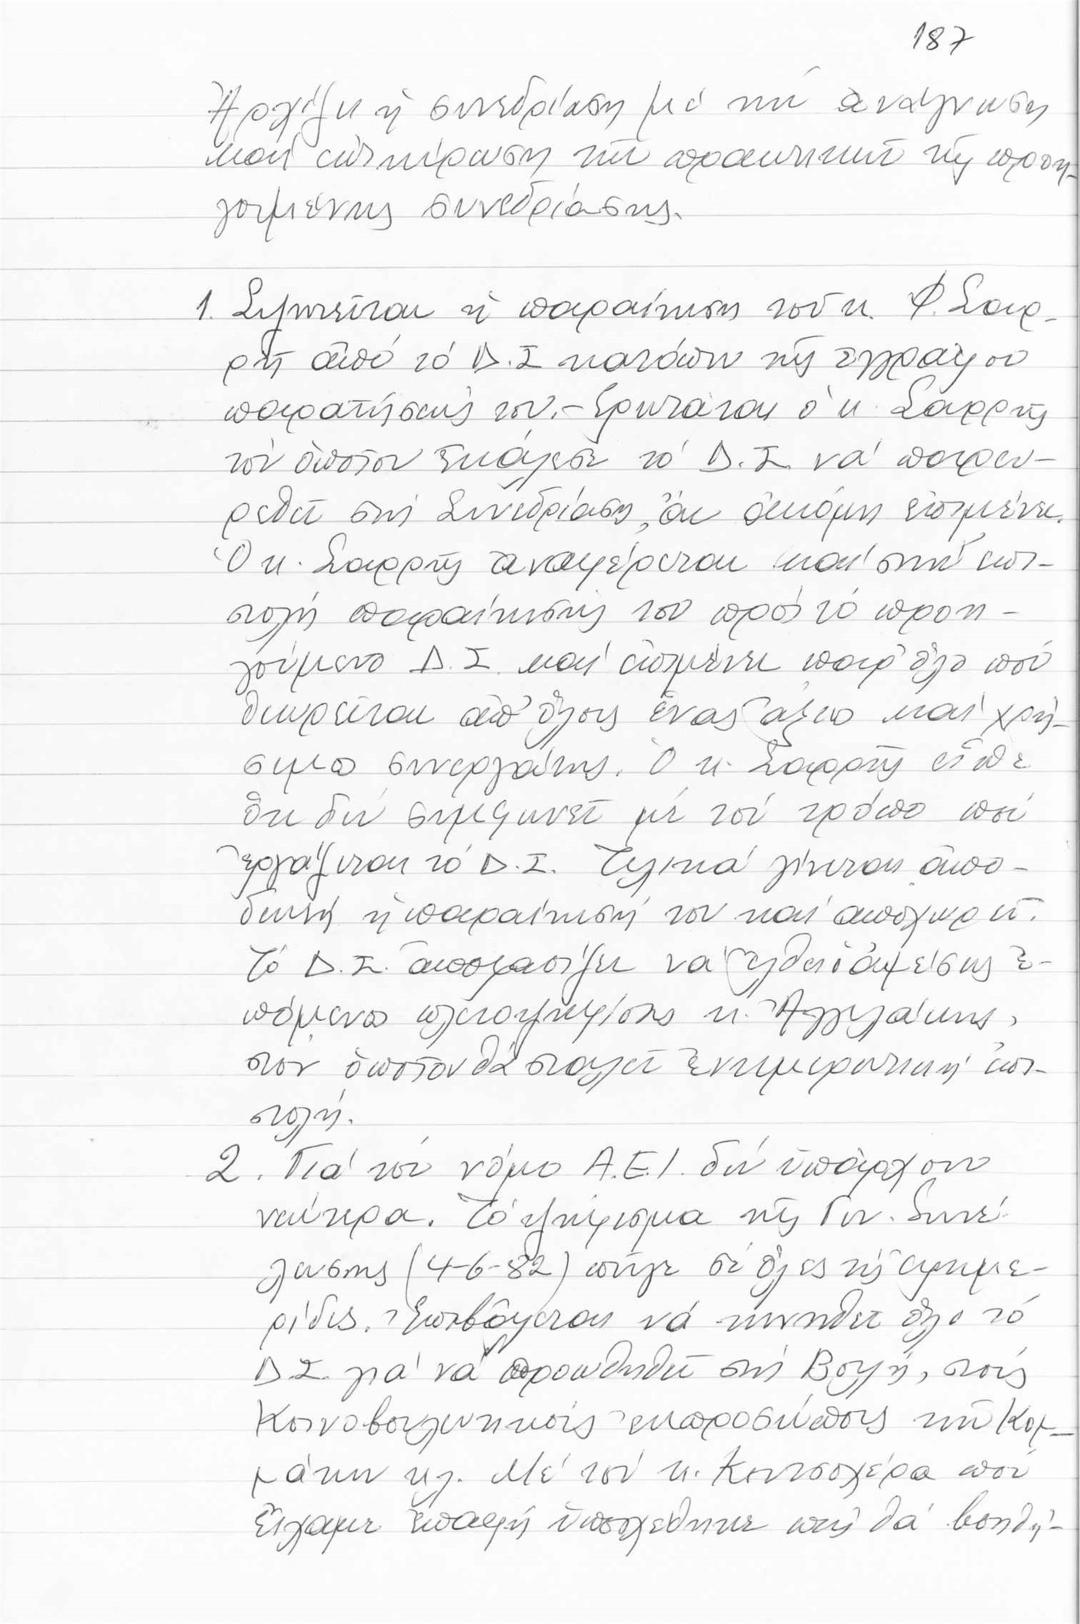 187
Ἀρχίζει ἡ συνεδρίαση μέ τήν ἀνάγνωση
καί ἐπικύρωση τῶν πρακτικῶν τῆς προη-
γουμένης συνεδρίασης.
1. Συζητεῖται ἡ παραίτηση τοῦ κ. Φ. Σαρ-
ρῆ ἀπό τό Δ.Σ κατόπιν τῆς ἐγγράφου
παραιτήσεώς του.- Ἐρωτᾶται ὁ κ. Σαρρῆς
τόν ὁποῖον ἐκάλεσε τό Δ.Σ. νά παρευ-
ρεθεῖ στή Συνεδρίαση, ἄν ἀκόμη ἐπιμένει.
Ὁ κ. Σαρρῆς ἀναφέρεται καί στήν ἐπι-
στολή παραίτησής του πρός τό προη-
γούμενο Δ.Σ. καί ἐπιμένει παρ' ὅλο πού
θεωρεῖται ἀπ' ὅλους ἕνας ἄξιο καί χρή-
σιμο συνεργάτης. Ὁ κ. Σαρρῆς εἶπε
ὅτι δέν συμφωνεῖ μέ τόν τρόπο πού
ἐργάζεται τό Δ.Σ. Τελικά γίνεται ἀπο-
δεκτή ἡ παραίτησή του καί ἀποχωρεῖ.
Τό Δ.Σ. ἀποφασίζει νά ἔλθει ὁ ἀμέσως ἑ-
πόμενο πλειοψηφίσας κ. Ἀγγελάκης,
στόν ὁποῖον θά σταλεῖ ἐνημερωτική ἐπι-
στολή.
2. Γιά τόν νόμο Α.Ε.Ι. δέν ὑπάρχουν
νεώτερα. Τό ψήφισμα τῆς Γεν. Συνέ-
λευσης (4-6-82) πῆγε σέ ὅλες τίς ἐφημε-
ρίδες. Ἐπιβάλεται νά κινηθεῖ ὅλο τό
Δ.Σ. γιά νά προωθηθεῖ στή Βουλή, στούς
Κοινοβουλευτικούς ἐκπροσώπους τῶν Κομ-
μάτων κλ. Μέ τόν κ. πού
εἴχαμε ἐπαφή ὑποσχέθηκε πώς θά βοηθή-